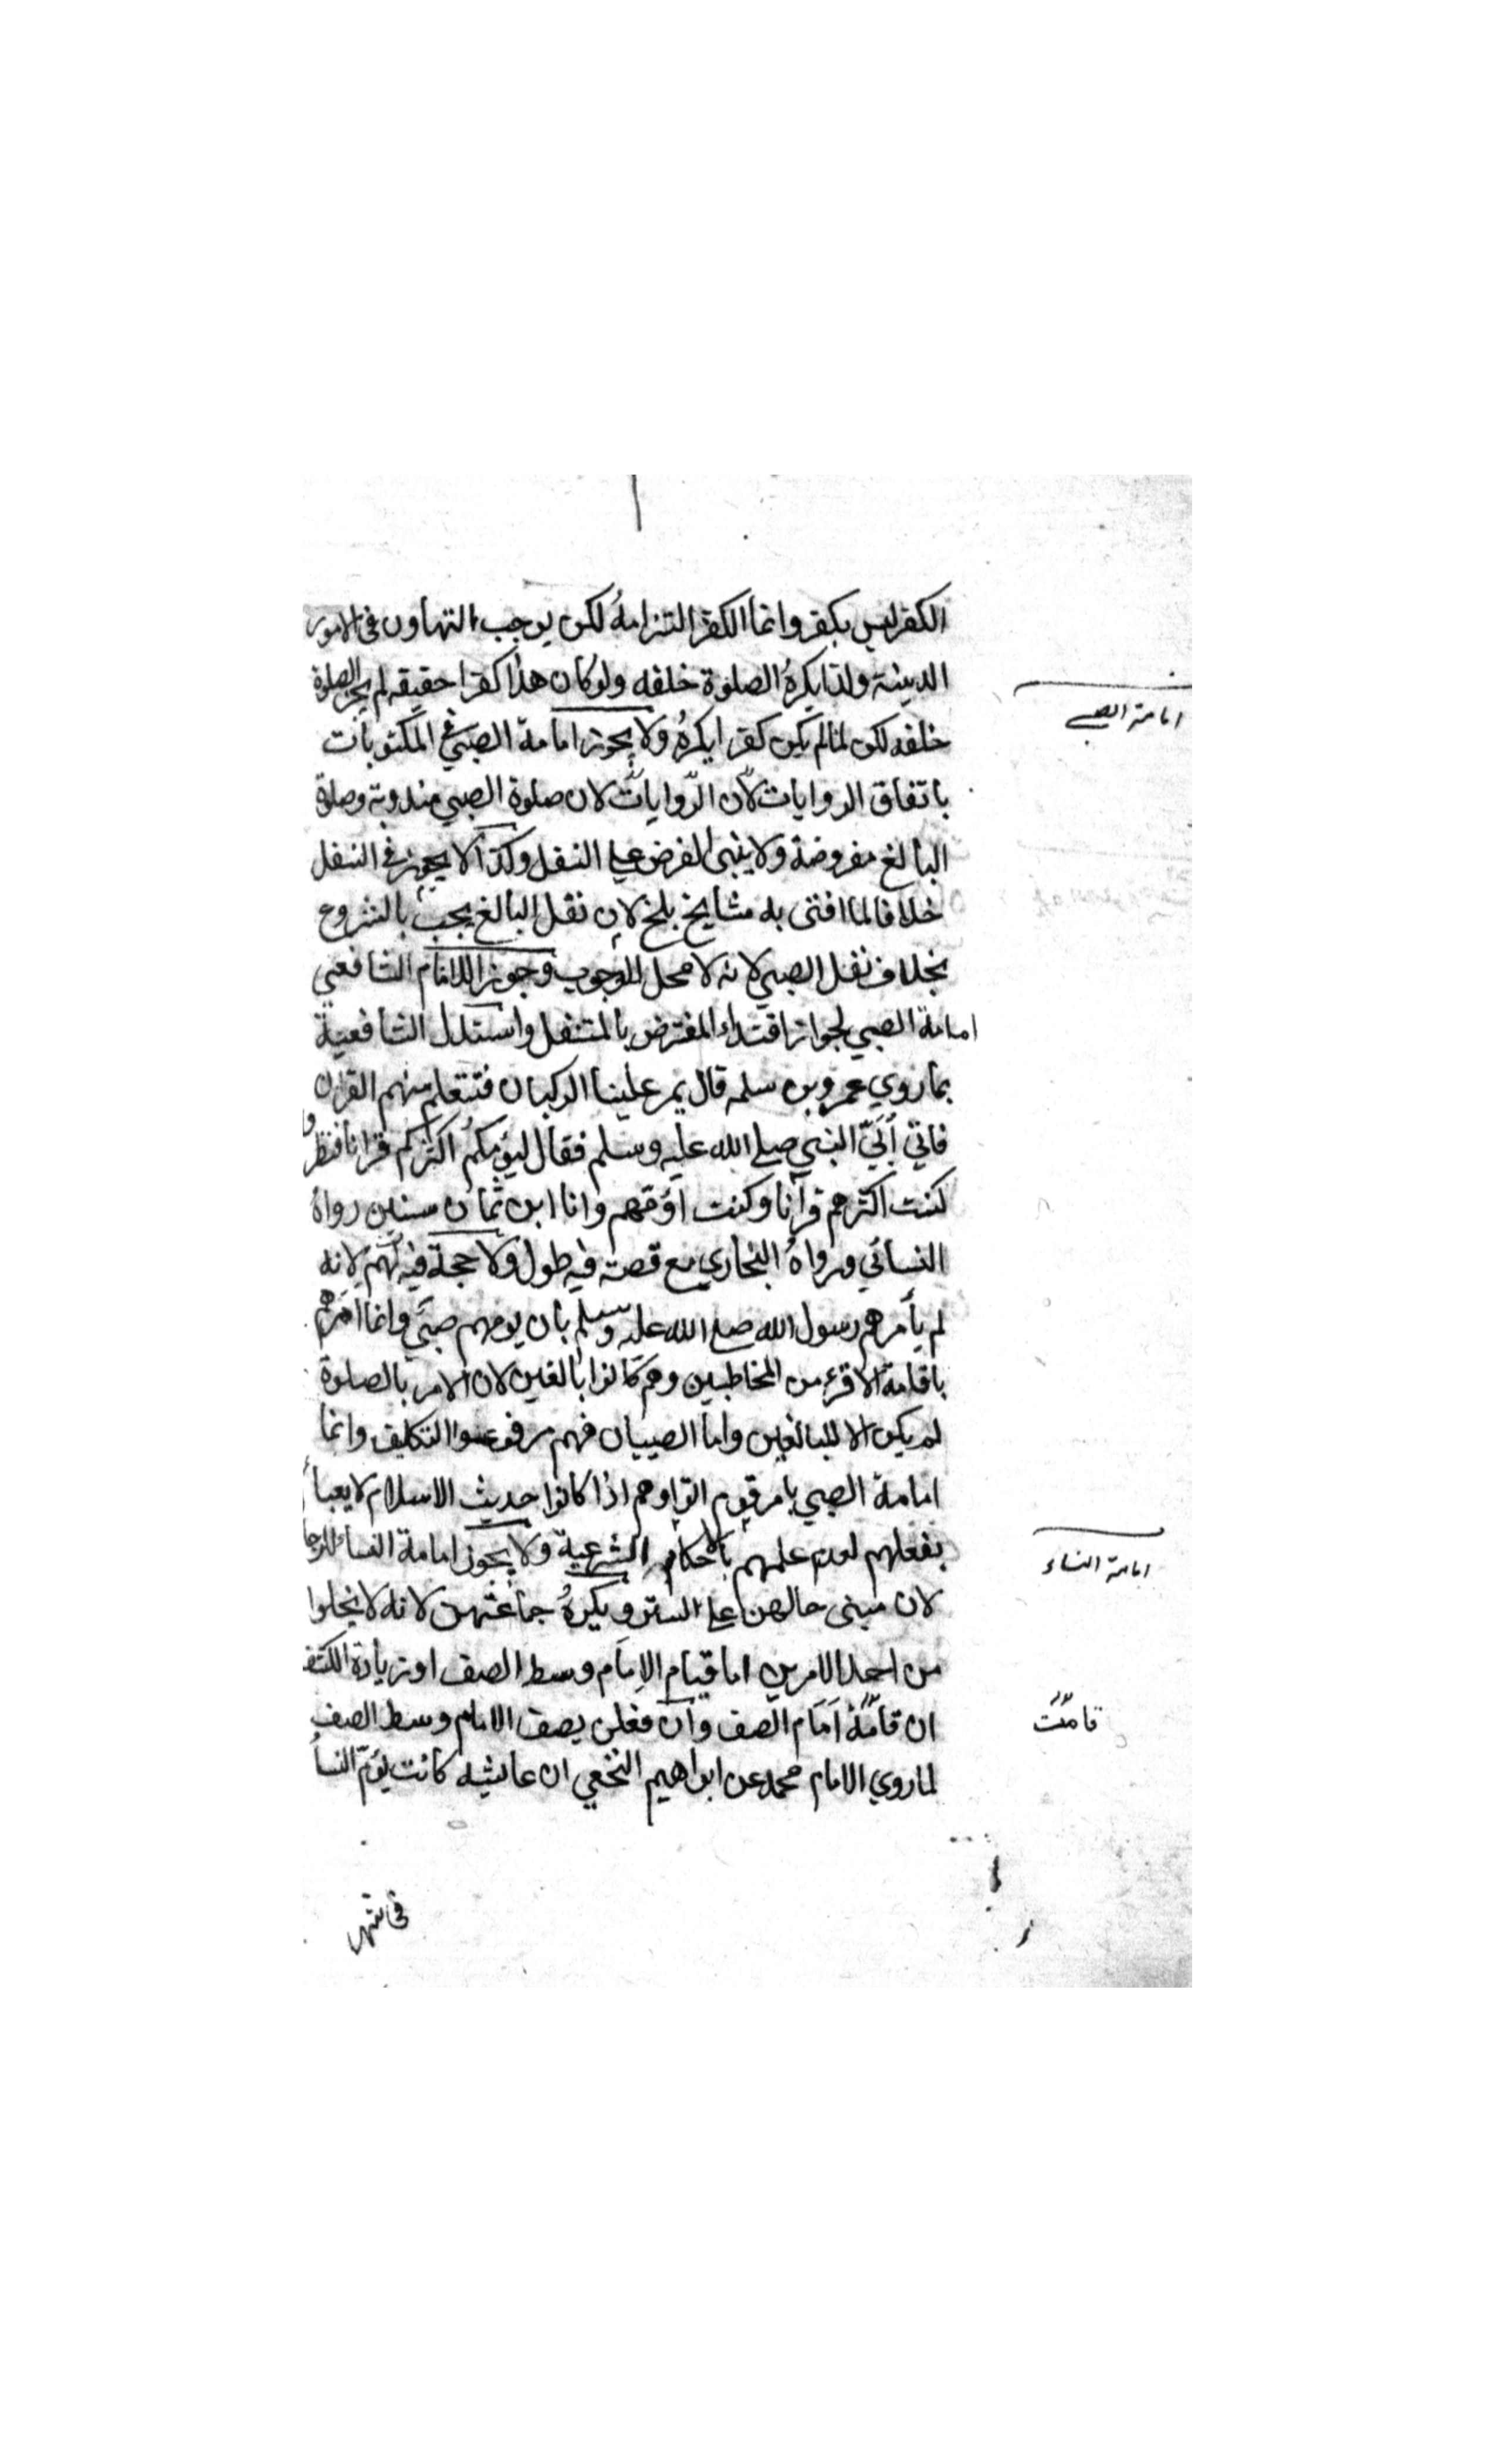 الكفر ليس بكفر وانما الكفر التزامهُ لكن يوجب التهاون في الامور
الدينية ولذا يكرهُ الصلوة خلفه ولو كان هذا كفرا حقيقه لم يجز الصلوة
امامة الصبي
خلفه لكن لما لم يكن كفرا يكرهُ ولا يجوز امامة الصبي في المكتوبات
باتفاق الروايات لان الروايات لان صلوة الصبي مندوبة وصلوة
البالغ مفروضة ولا يبنى الفرض على النفل وكذا لا يجوز في النفل
خلافا لما افتى به مشايخ بلخ لان نفل البالغ يجب بالشروع
بخلاف نفل الصبي لانه لا محل للوجوب وجوز الامام الشافعي
امامة الصبي لجواز اقتداء المفترض بالمتنفل واستدل الشافعية
بما روي عمرو بن سلمه قال يمر علينا الركبان فنتعلم منهم القران
فاتي أَبِيّ النبي صلى الله عليه وسلم فقال ليؤمكم اكثركم قرانا فنظروا
كنت اكثرهم قرآنا وكنت اؤمهم وانا ابن ثمان سنين رواهُ
النسائي ورواهُ البخاري مع قصة فيه طول ولا حجة فيه لهم لانه
لم يأمرهم رسول الله صلى الله عليه وسلم بان يومهم صبي وانما امرهم
باقامة الاقرء من المخاطبين وهم كانوا بالغين لان الامر بالصلوة
لم يكن الا للبالغين واما الصبيان فهم مرفوعوا التكليف وانما
امامة الصبي بامر قومه وهم اذا كانوا حديث الاسلام لا يعبأ
بفعلهم لعدم علمهم بالاحكام الشرعية ولا يجوز امامة النساء للرجا
امامة النساء
لان مبنى حالهن على الستر ويكرهُ جماعتهن لانه لا يخلوا
من احد الامرين اما قيام الامام وسط الصف او زيادة الكشف
ان قامت اَمَام الصف وان فعلن يصف الامام وسط الصف
قامَتْ
لما روي الامام محمد عن ابراهيم النخعي ان عايشه كانت يؤمّ النساء
في شهر